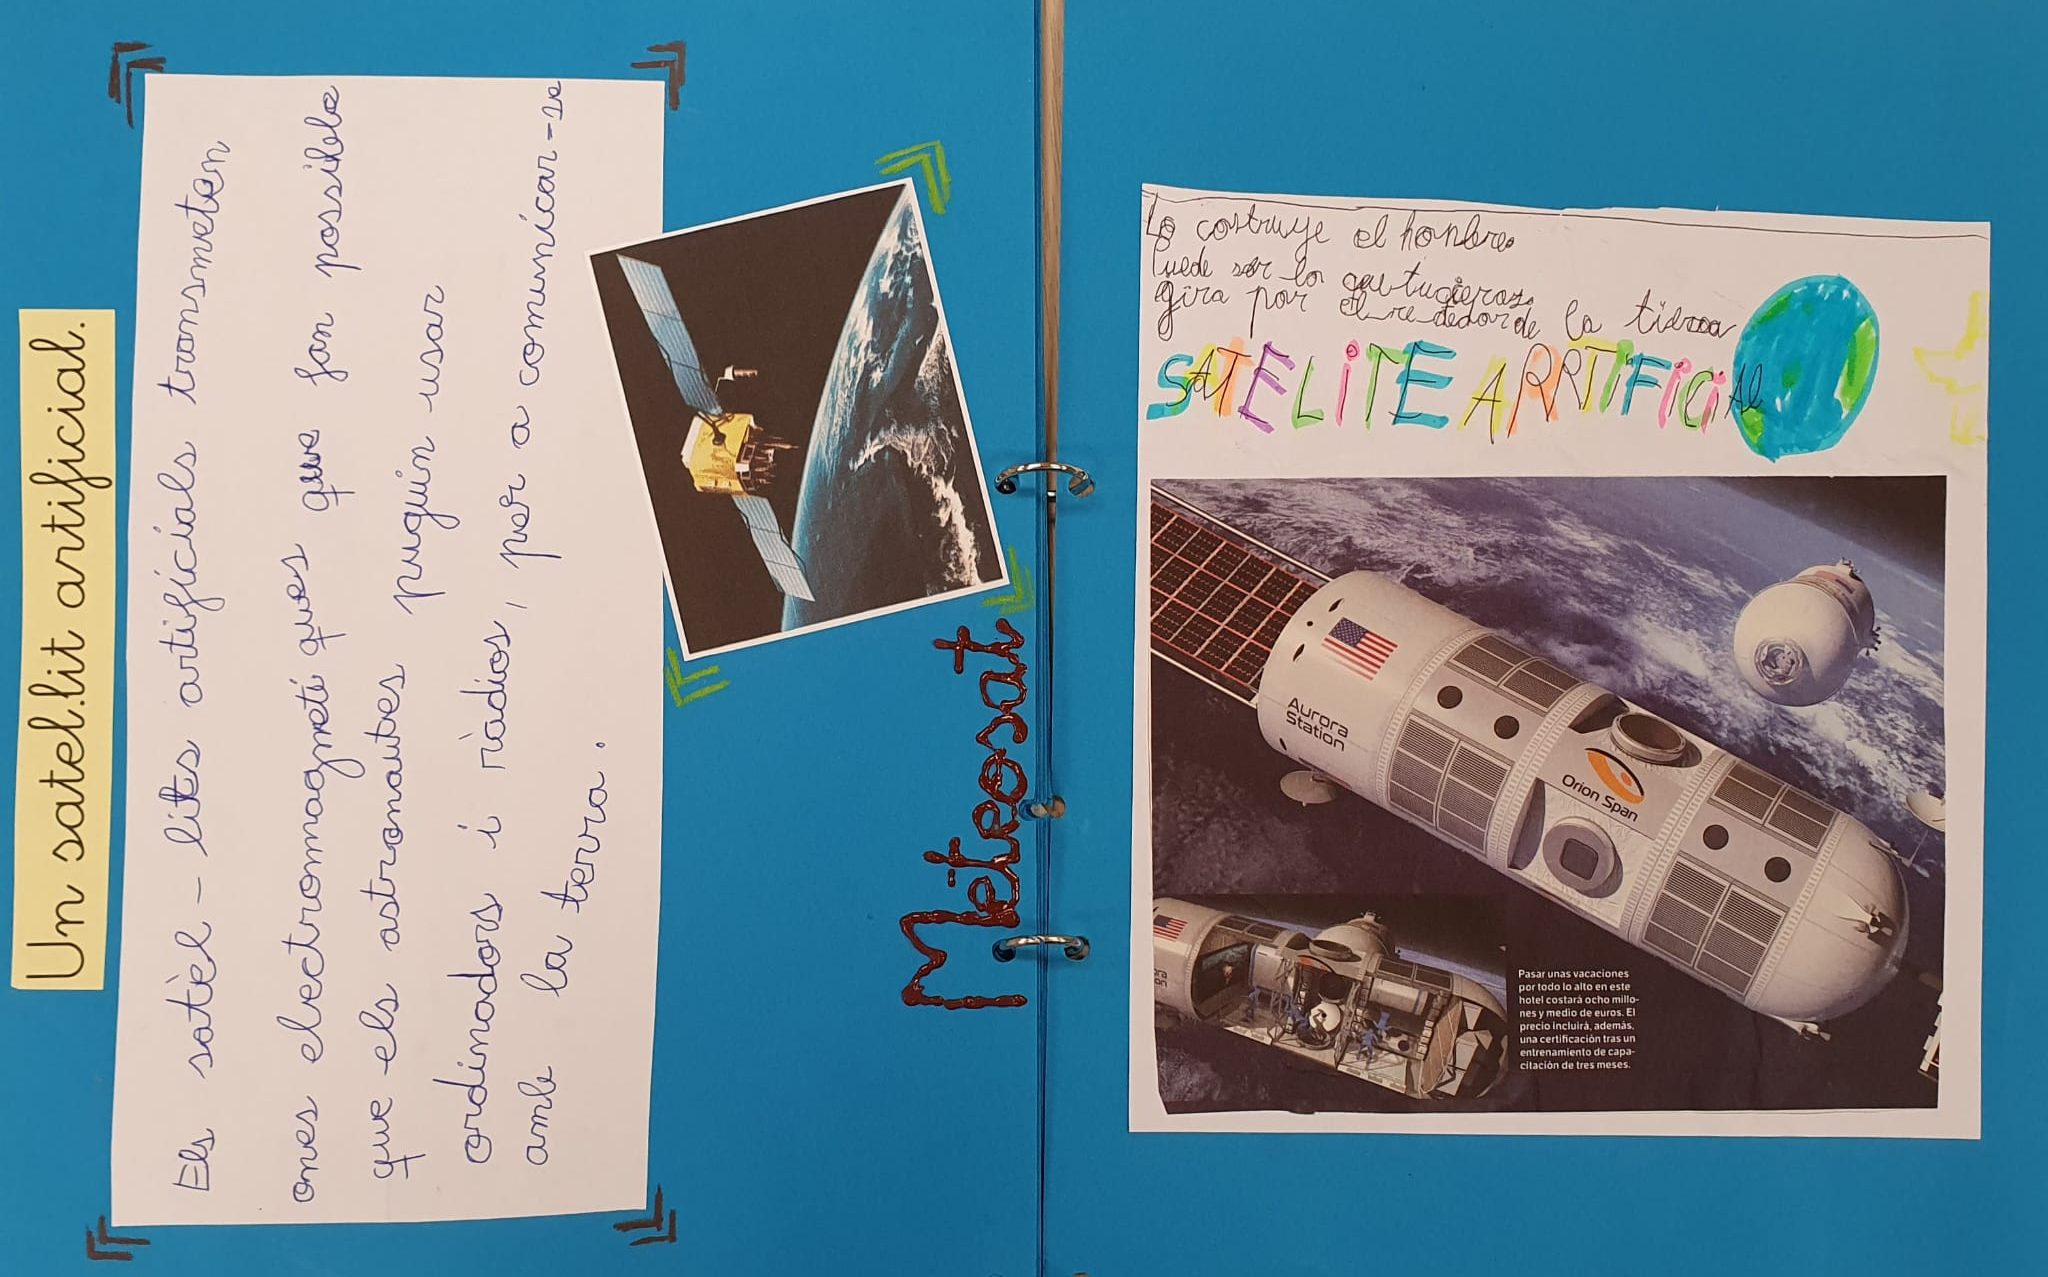 Un satel.lit artificial.
Els satèl - lits artificials transmeten
ones electromagneti ques que fan possible
que els astronautes puguin usar
ordinadors i ràdios, per a comunicar-se
amb la terra.
Meteosat
Lo costruye el honbre.
Puede ser lo
gira por el re dedor de la tierra
SATELITE ARRTIFICIAL
Aurora
Station
Orion Span
Pasar unas vacaciones
por todo lo alto en este
hotel costará ocho millo-
nes y medio de euros. El
precio incluirá, además,
una certificación tras un
entrenamiento de capa-
citación de tres meses.